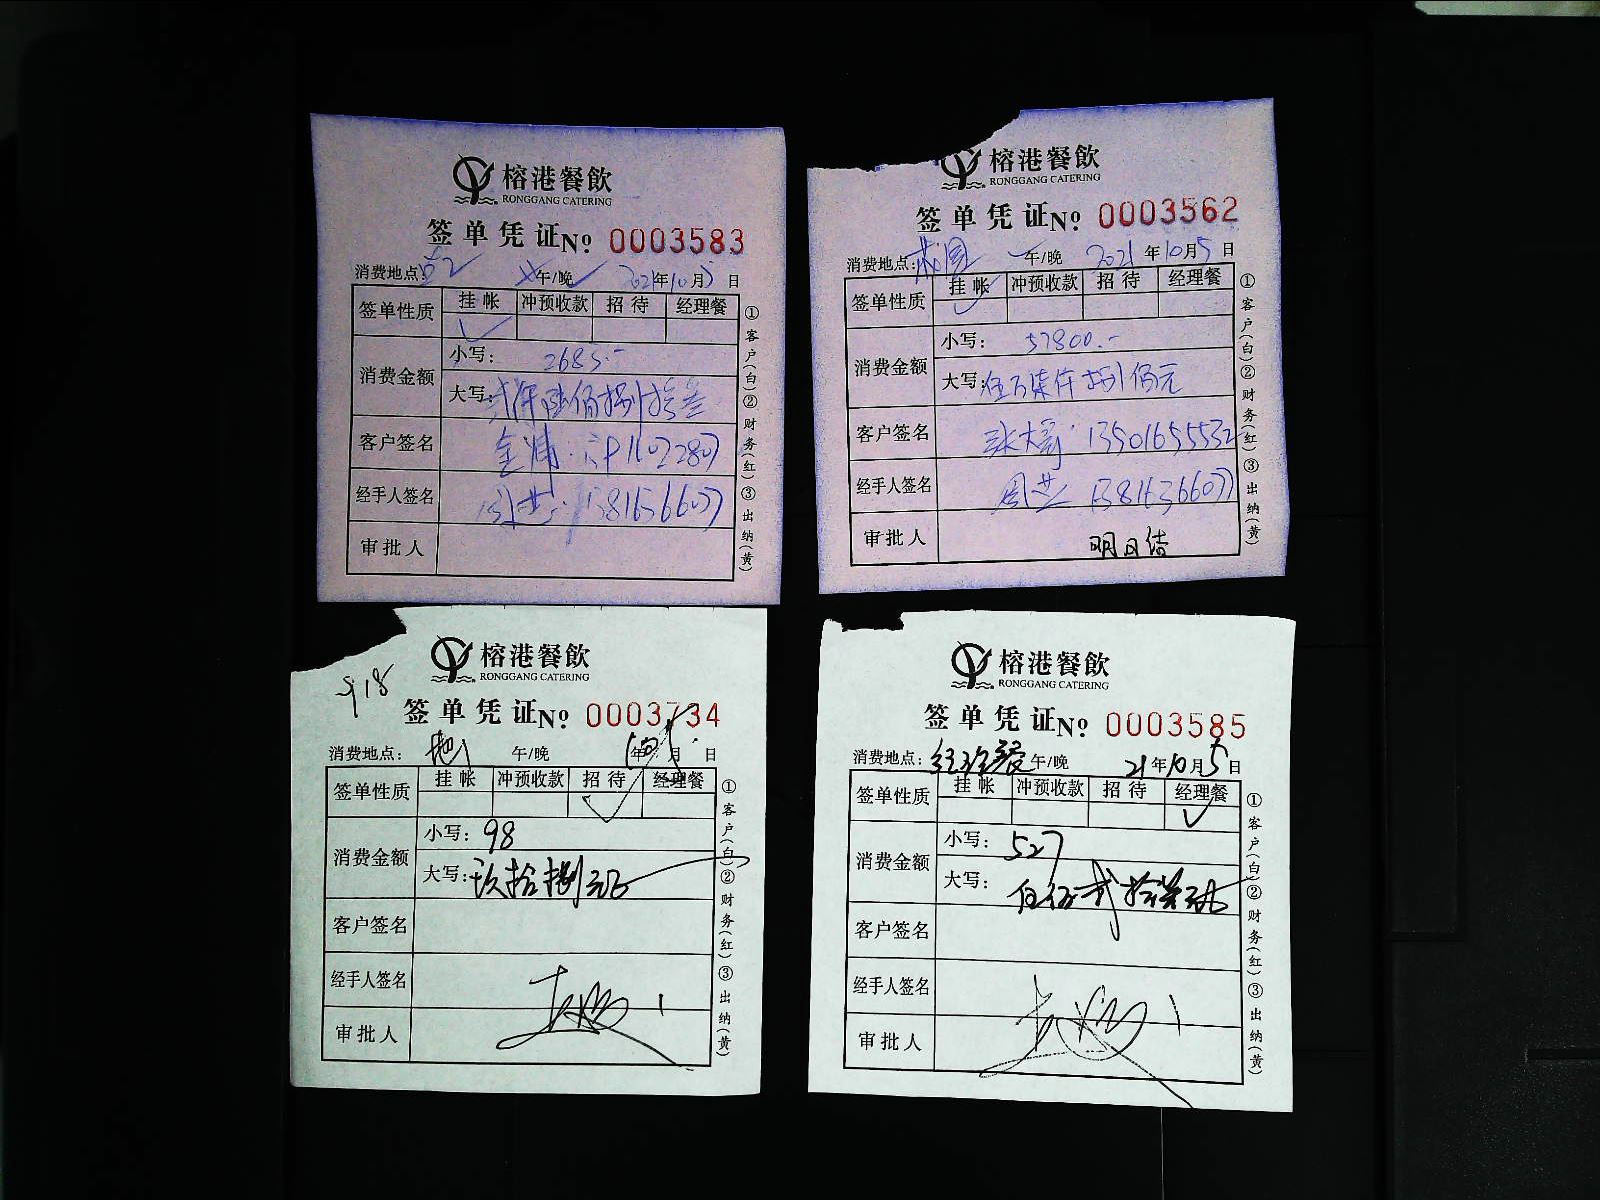 榕港餐飲
RONGGANG CATERING
签单凭证№ 0003583
消费地点: 午/晚 2021年10月5日
签单性质 挂帐 冲预收款 招待 经理餐
消费金额
小写: 2685.-
大写: 贰仟陆佰捌拾
客户签名
经手人签名
审批人
①客户(白)②财务(红)③出纳(黄)
榕港餐飲
RONGGANG CATERING
签单凭证№ 0003562
消费地点: 午/晚 2021年10月5日
签单性质 挂帐 冲预收款 招待 经理餐
消费金额
小写: 57800.-
大写: 伍万柒仟捌佰元
客户签名 张大哥 13501655532
经手人签名
审批人 明日结
①客户(白)②财务(红)③出纳(黄)
榕港餐飲
RONGGANG CATERING
签单凭证№ 0003734
消费地点: 午/晚 年 月 日
签单性质 挂帐 冲预收款 招待 经理餐
消费金额
小写: 98
大写: 玖拾捌元
客户签名
经手人签名
审批人
①客户(白)②财务(红)③出纳(黄)
榕港餐飲
RONGGANG CATERING
签单凭证№ 0003585
消费地点: 经理餐 午/晚 21年10月5日
签单性质 挂帐 冲预收款 招待 经理餐
消费金额
小写: 527
大写: 伍佰贰拾柒元
客户签名
经手人签名
审批人
①客户(白)②财务(红)③出纳(黄)